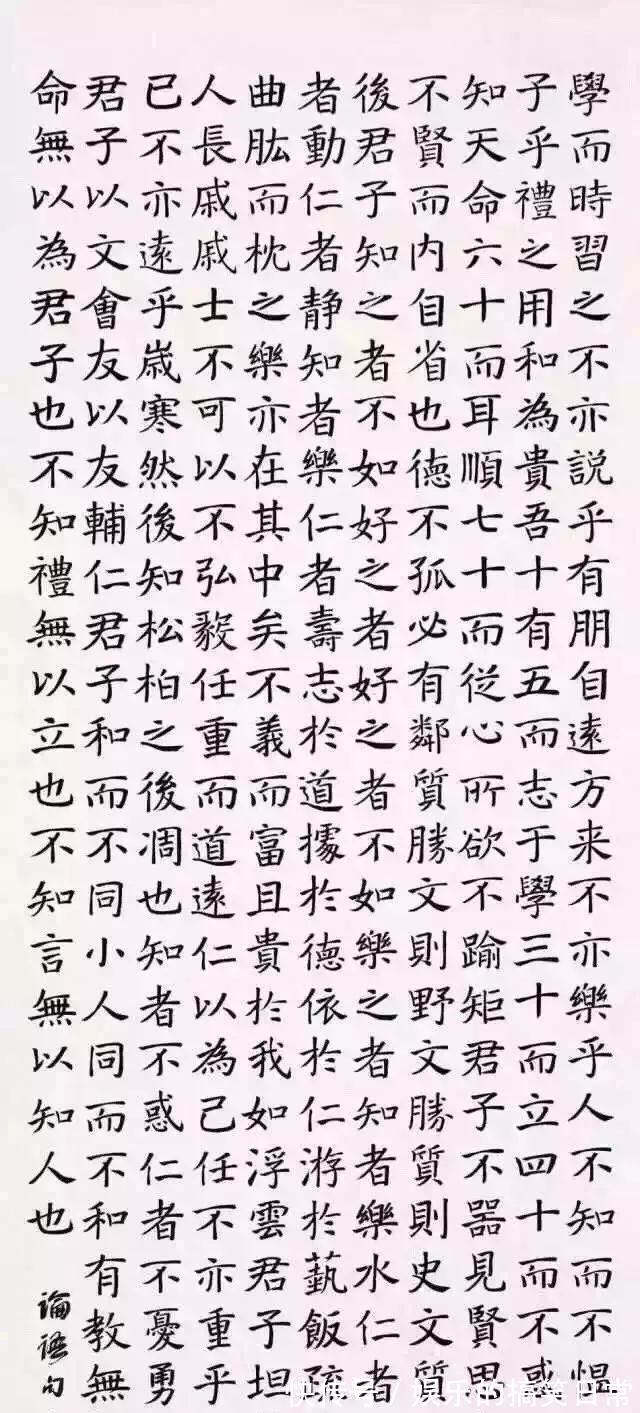 學而時習之不亦説乎有朋自遠方来不亦樂乎人不知而不愠
子乎禮之用和為貴吾十有五而志于學三十而立四十而不惑
知天命六十而耳順七十而従心所欲不踰矩君子不器見賢思
不賢而内自省也德不孤必有鄰質勝文則野文勝質則史文質
後君子知之者不如好之者好之者不如樂之者知者樂水仁者
者動仁者静知者樂仁者壽志於道據於德依於仁游於藝飯疏
曲肱而枕之樂亦在其中矣不義而富且貴於我如浮雲君子坦
人長戚戚士不可以不弘毅任重而道遠仁以為己任不亦重乎
已不亦遠乎歳寒然後知松柏之後凋也知者不惑仁者不憂勇
君子以文會友以友輔仁君子和而不同小人同而不和有教無
命無以為君子也不知禮無以立也不知言無以知人也
論語句
快传号/娱乐的搞笑日常